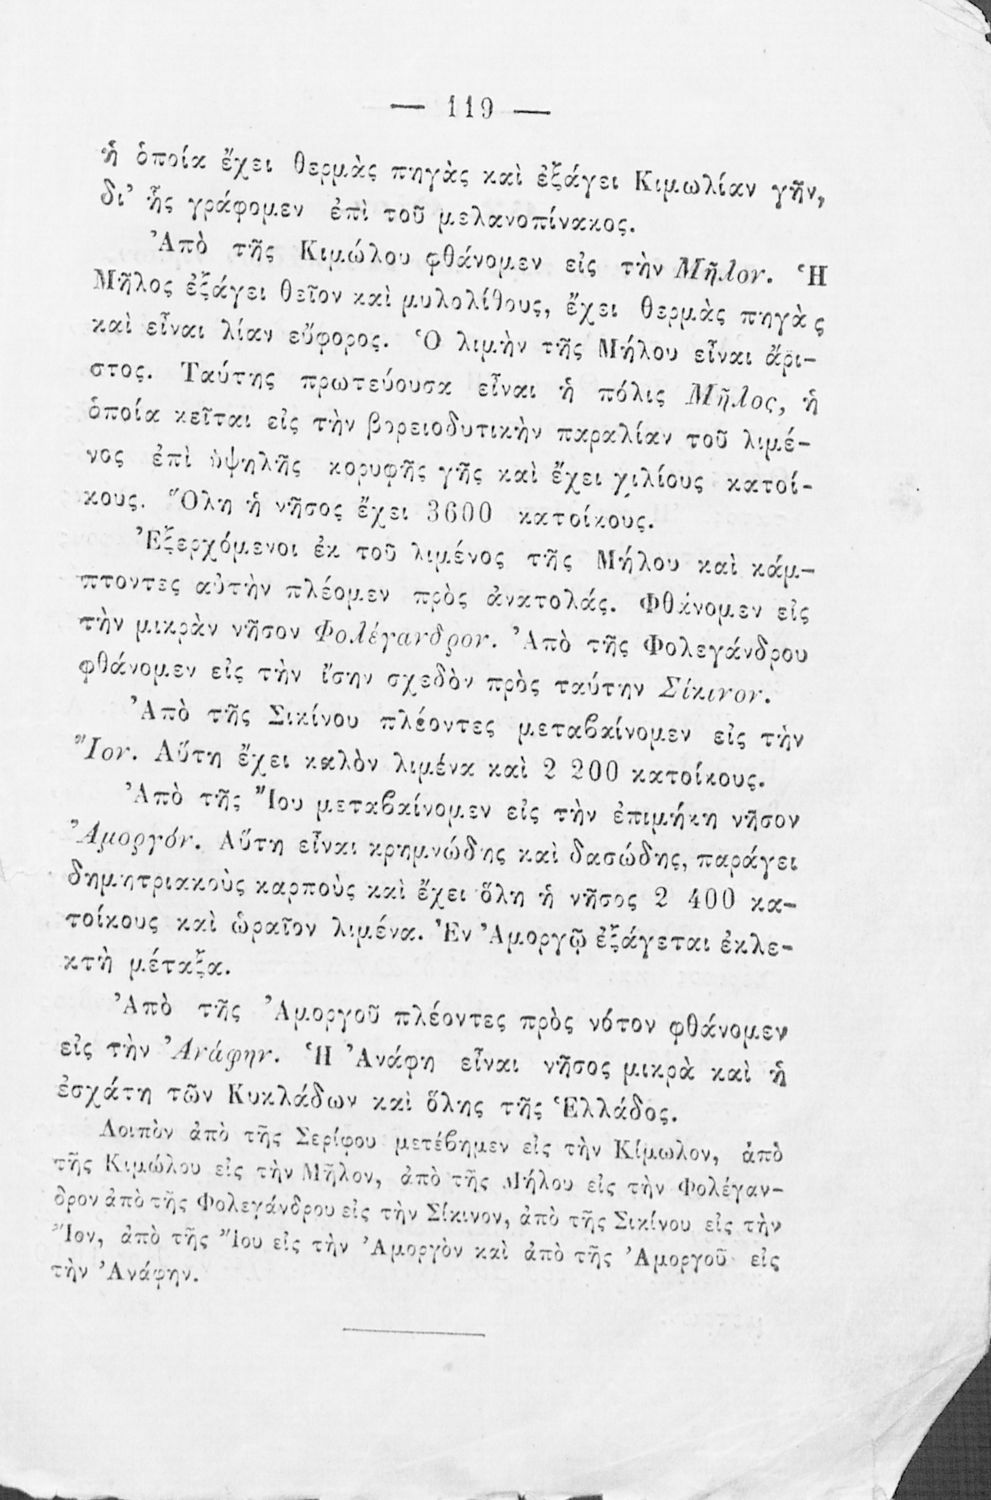 — 119 —
ἡ ὁποία ἔχει θερμὰς πηγὰς καὶ ἐξάγει Κιμωλίαν γῆν,
δι’ ἧς γράφομεν ἐπὶ τοῦ μελανοπίνακος.
Ἀπὸ τῆς Κιμώλου φθάνομεν εἰς τὴν Μῆλον. Ἡ
Μῆλος ἐξάγει θεῖον καὶ μυλολίθους, ἔχει θερμὰς πηγὰς
καὶ εἶναι λίαν εὔφορος. Ὁ λιμὴν τῆς Μήλου εἶναι ἄρι-
στος. Ταύτης πρωτεύουσα εἶναι ἡ πόλις Μῆλος, ἡ
ὁποία κεῖται εἰς τὴν βορειοδυτικὴν παραλίαν τοῦ λιμέ-
νος ἐπὶ ὑψηλῆς κορυφῆς γῆς καὶ ἔχει χιλίους κατοί-
κους. Ὅλη ἡ νῆσος ἔχει 3600 κατοίκους.
Ἐξερχόμενοι ἐκ τοῦ λιμένος τῆς Μήλου καὶ κάμ-
πτοντες αὐτὴν πλέομεν πρὸς ἀνατολάς. Φθάνομεν εἰς
τὴν μικρὰν νῆσον Φολέγανδρον. Ἀπὸ τῆς Φολεγάνδρου
φθάνομεν εἰς τὴν ἴσην σχεδὸν πρὸς ταύτην Σίκινον.
Ἀπὸ τῆς Σικίνου πλέοντες μεταβαίνομεν εἰς τὴν
Ἴον. Αὕτη ἔχει καλὸν λιμένα καὶ 2 200 κατοίκους.
Ἀπὸ τῆς Ἴου μεταβαίνομεν εἰς τὴν ἐπιμήκη νῆσον
Ἀμοργόν. Αὕτη εἶναι κρημνώδης καὶ δασώδης, παράγει
δημητριακοὺς καρποὺς καὶ ἔχει ὅλη ἡ νῆσος 2 400 κα-
τοίκους καὶ ὡραῖον λιμένα. Ἐν Ἀμοργῷ ἐξάγεται ἐκλε-
κτὴ μέταξα.
Ἀπὸ τῆς Ἀμοργοῦ πλέοντες πρὸς νότον φθάνομεν
εἰς τὴν Ἀνάφην. Ἡ Ἀνάφη εἶναι νῆσος μικρὰ καὶ ἡ
ἐσχάτη τῶν Κυκλάδων καὶ ὅλης τῆς Ἑλλάδος.
Λοιπὸν ἀπὸ τῆς Σερίφου μετέβημεν εἰς τὴν Κίμωλον, ἀπὸ
τῆς Κιμώλου εἰς τὴν Μῆλον, ἀπὸ τῆς Μήλου εἰς τὴν Φολέγαν-
δρον ἀπὸ τῆς Φολεγάνδρου εἰς τὴν Σίκινον, ἀπὸ τῆς Σικίνου εἰς τὴν
Ἴον, ἀπὸ τῆς Ἴου εἰς τὴν Ἀμοργὸν καὶ ἀπὸ τῆς Ἀμοργοῦ εἰς
τὴν Ἀνάφην.